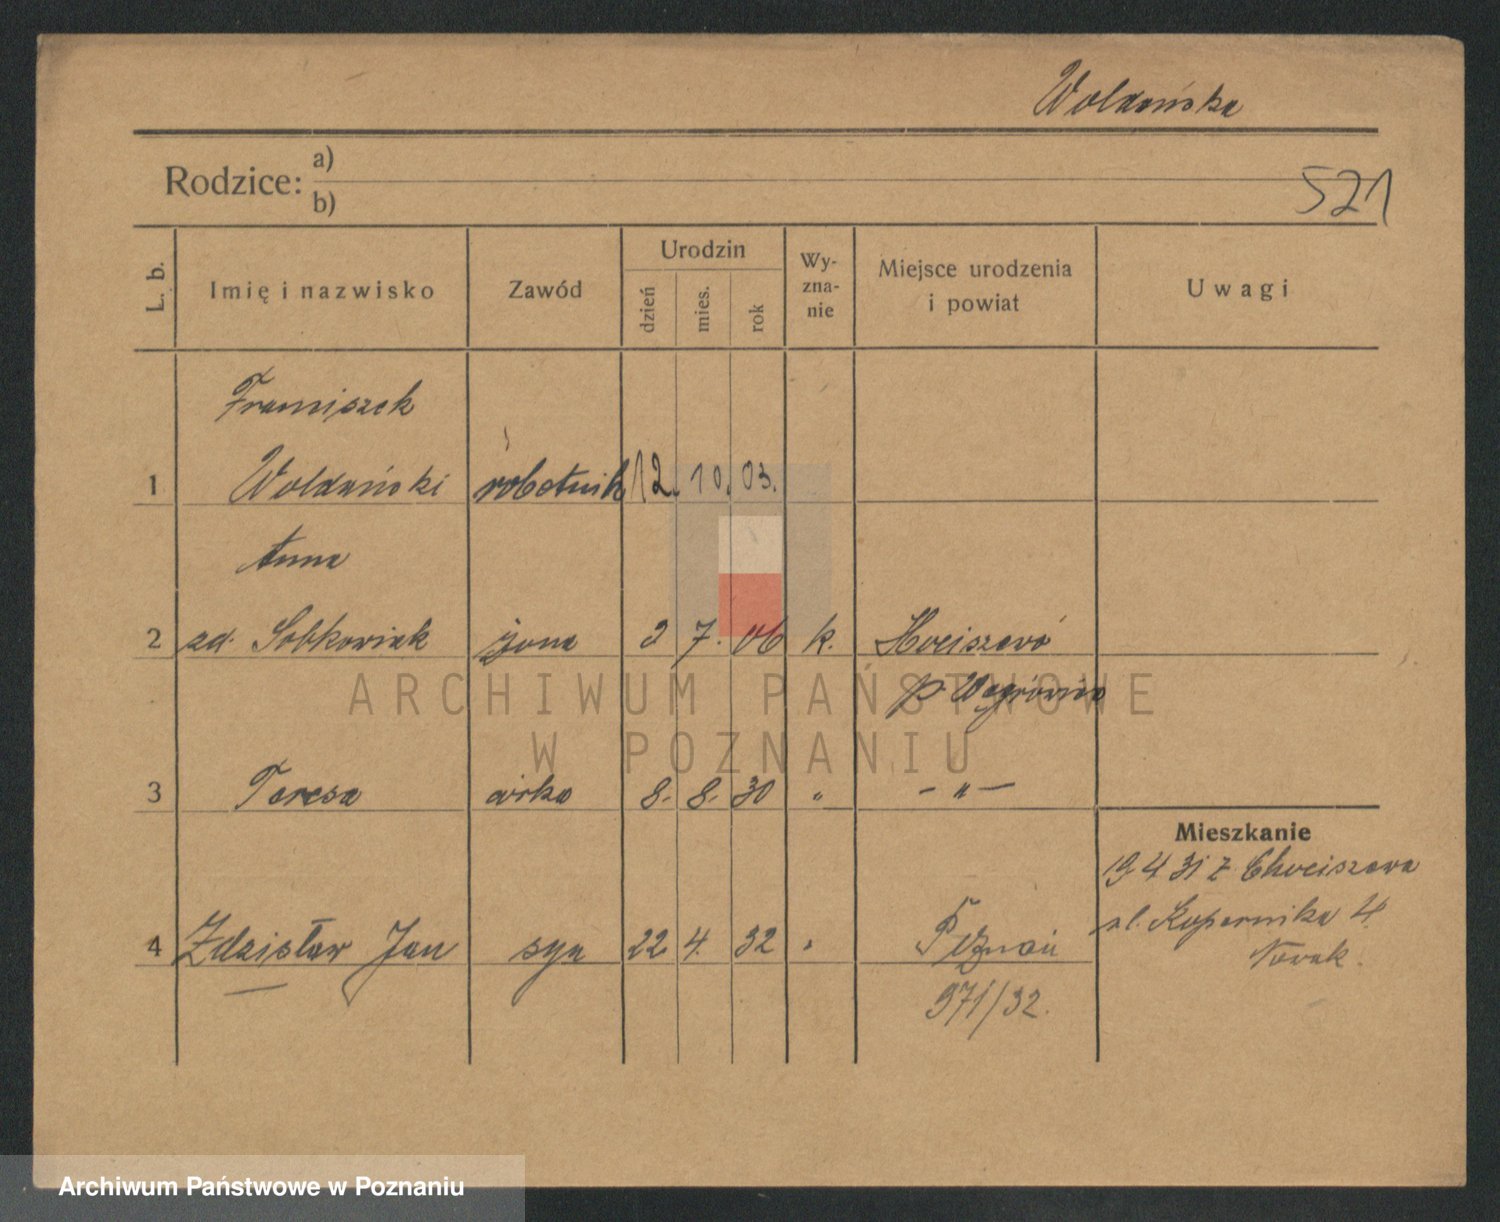 Woldańska
Rodzice: a)
b)
521
L. b.
Imię i nazwisko
Zawód
Urodzin
dzień
mies.
rok
Wy-
zna-
nie
Miejsce urodzenia
i powiat
Uwagi
Franciszek
1 Woldański robotnik 12. 10. 03.
Anna
2 zd. Sobkowiak żona 2 7. 06 k. Hociszewo
p. Wągrowiec
ARCHIWUM PAŃSTWOWE
W POZNANIU
3 Teresa córka 8. 8. 30 " – " –
Mieszkanie
19 4 31 z Chociszewa
ul. Kopernika 4.
Nowak.
4 Zdzisław Jan syn 22 4. 32 " Poznań
971/32.
Archiwum Państwowe w Poznaniu